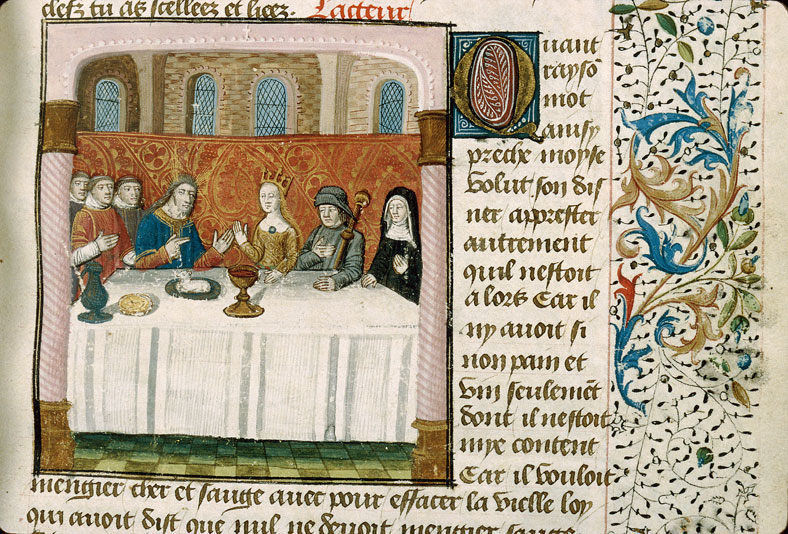 clefz tu as scelleez et liees. Lacteur
Quant
rayso
mot
aussy
preche moyse
Volut son dis
ner apprester
autrement
quil nestoit
a lors Car il
ny auoit si
non pain et
vin seulemēt
dont il nestoit
mye content
Car il vouloit
mengier cher et sangc auec pour effacer la vielle loy
qui auoit dist que nul ne deuoit mengier sangc